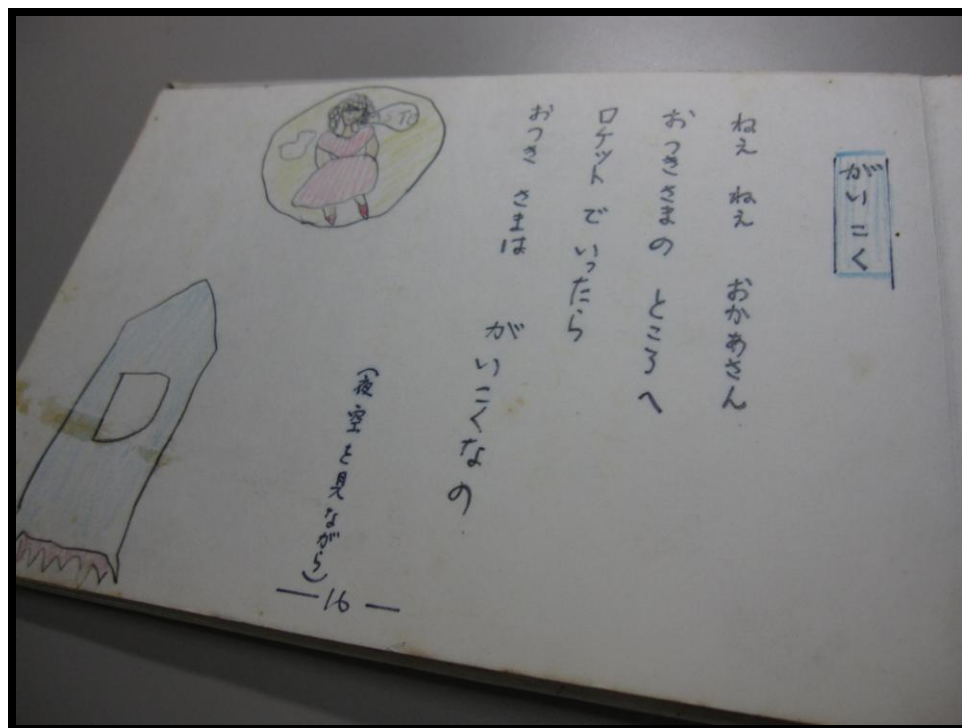 がいこく
ねえ ねえ おかあさん
おつきさまの ところへ
ロケットで いったら
おつき さまは
がいこくなの
(夜空を見ながら)
—16—